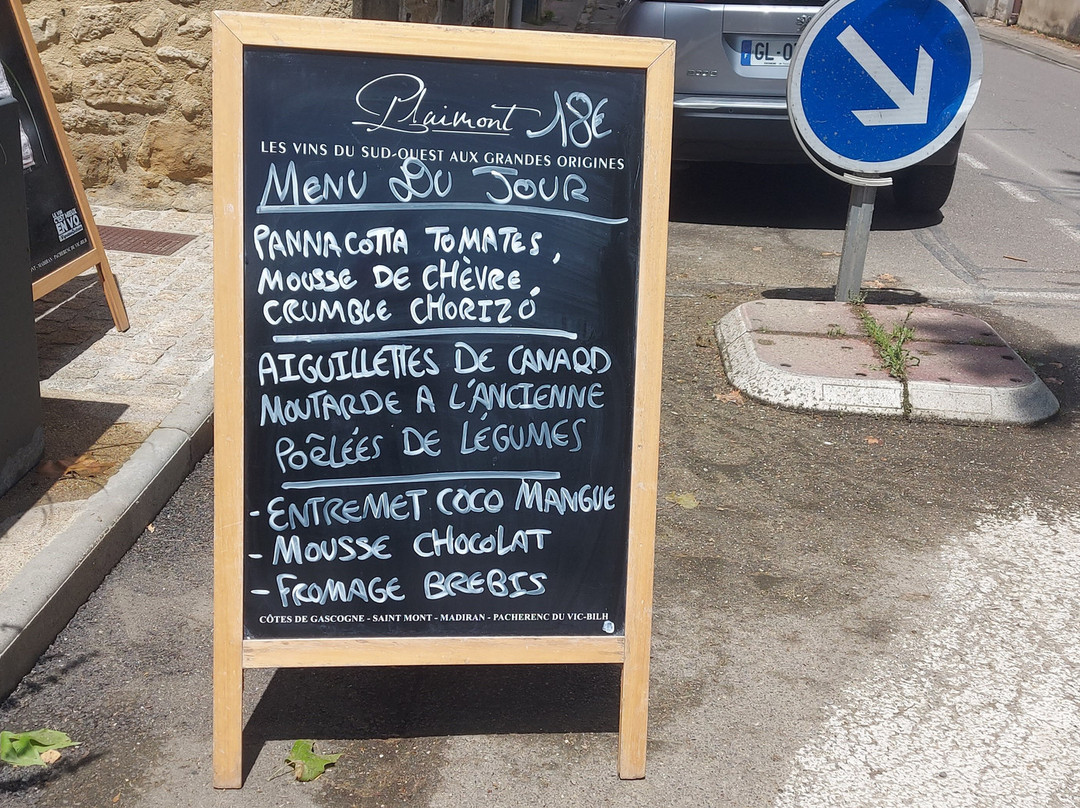 Plaimont 18€
LES VINS DU SUD-OUEST AUX GRANDES ORIGINES
MENU DU JOUR
PANNACOTTA TOMATES,
MOUSSE DE CHÈVRE,
CRUMBLE CHORIZO
AIGUILLETTES DE CANARD
MOUTARDE A L'ANCIENNE
POÊLÉES DE LÉGUMES
- ENTREMET COCO MANGUE
- MOUSSE CHOCOLAT
- FROMAGE BREBIS
CÔTES DE GASCOGNE - SAINT MONT - MADIRAN - PACHERENC DU VIC-BILH
EN VO
GL-0